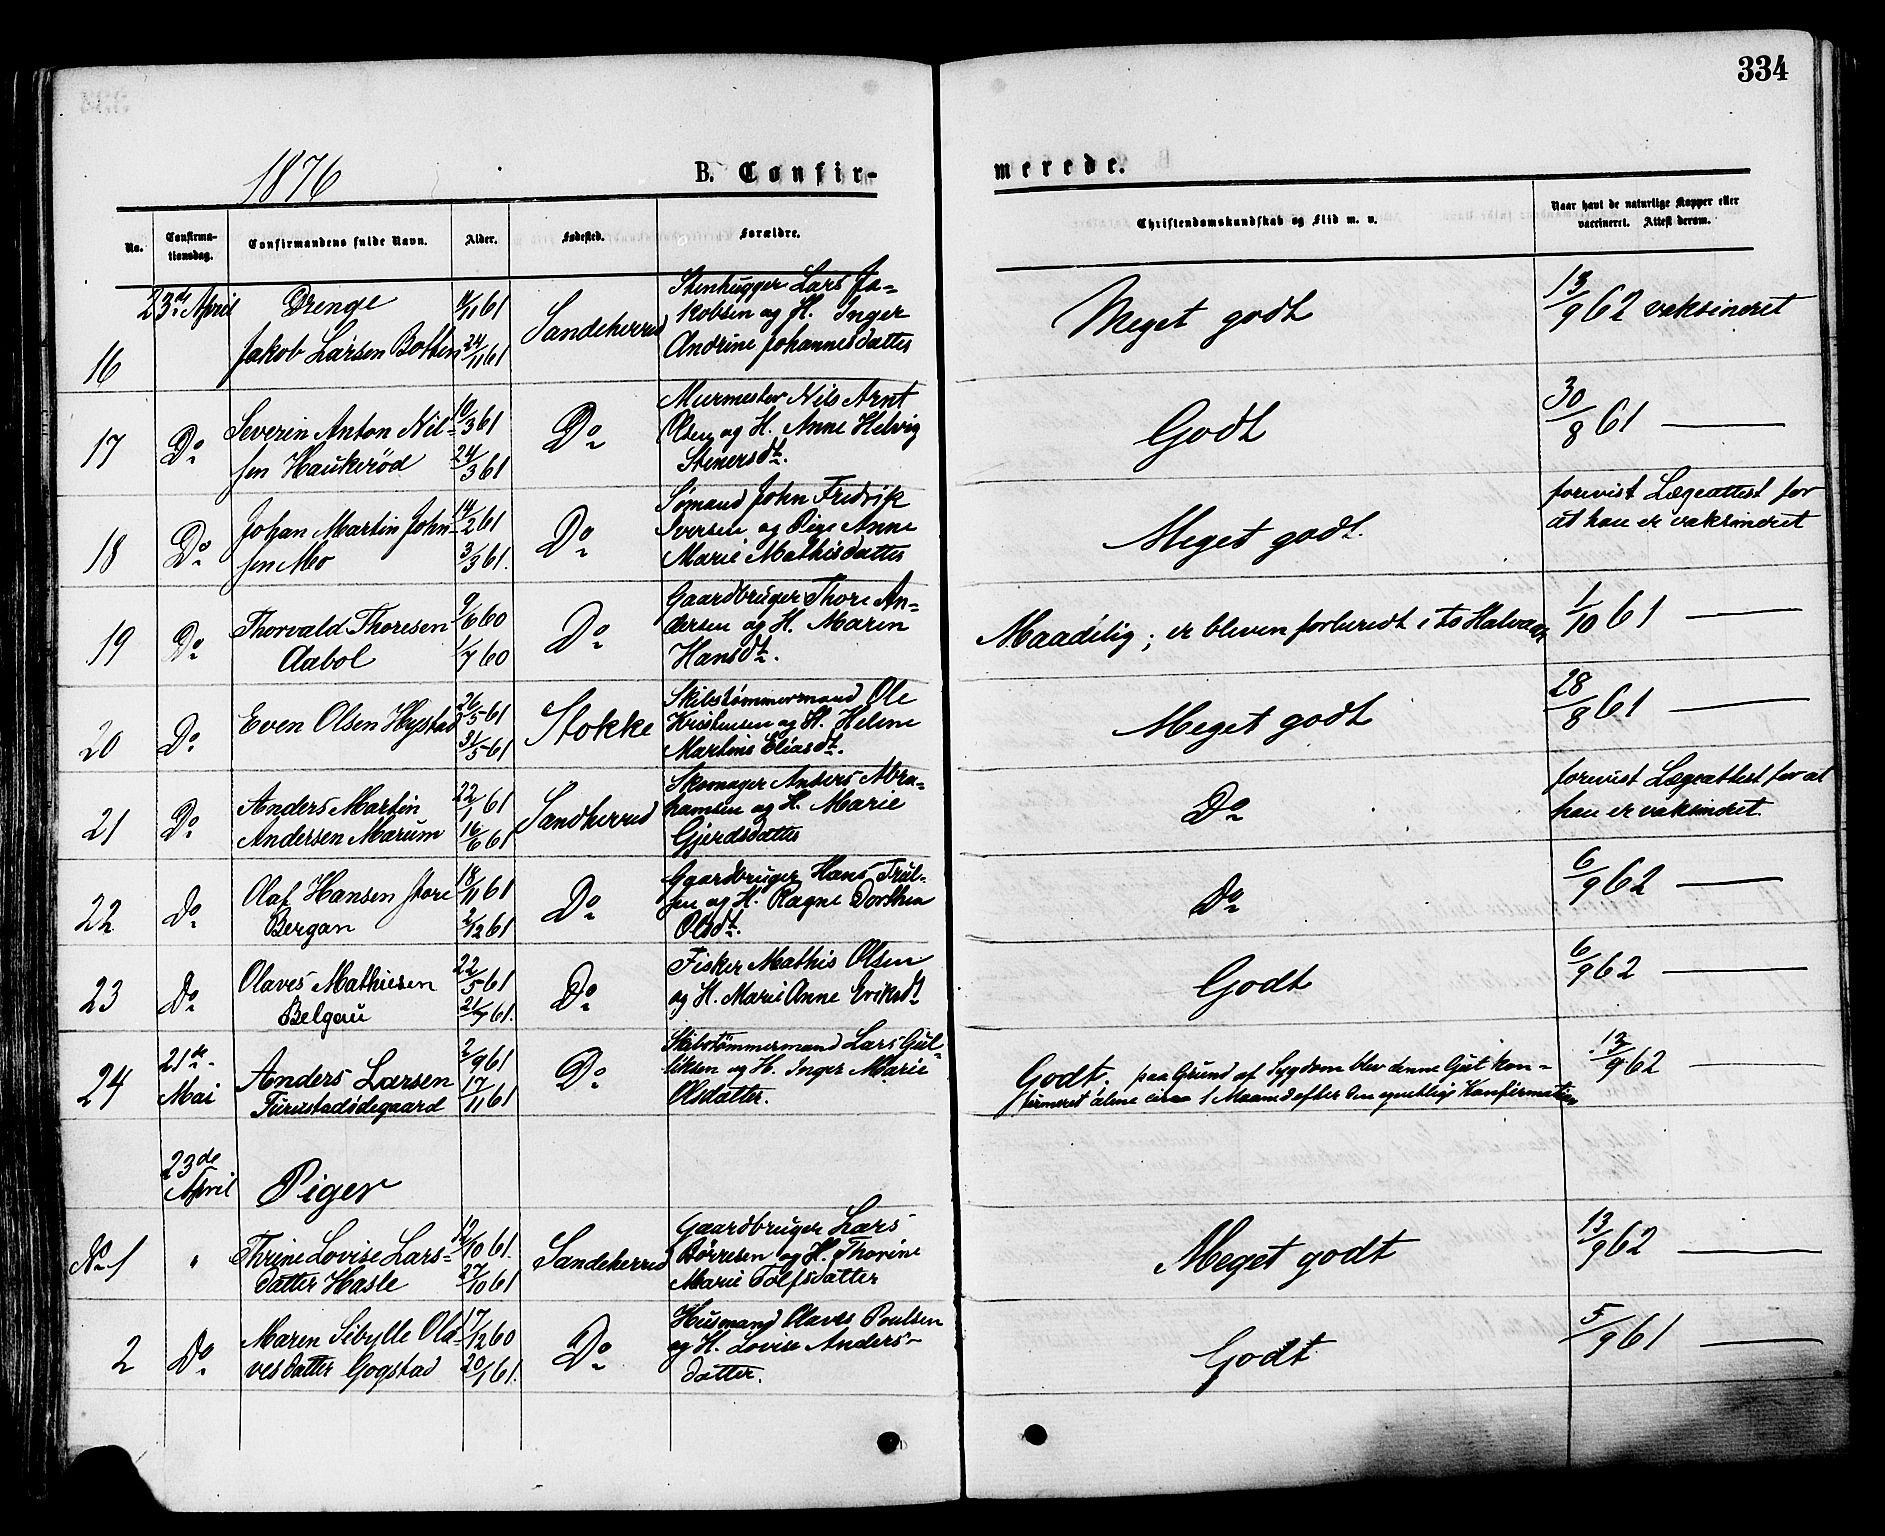 334
1876
B. Confir-
merede.
No.
Confirma-
tionsdag.
Confirmandens fulde Navn.
Alder.
Fødested.
Forældre.
Christendomskundskab og Flid m. v.
Naar havt de naturlige Kopper eller
vaccineret. Attest derom.
23de April Drenge
16 Jakob Larsen Botten 4/11 61 24/11 61 Sandeherred
Stenhugger Lars Ja-
kobsen og H. Inger
Andrine Johannesdatter
Meget godt
13/9 62 vaksineret
17 Do Severin Anton Nil-
sen Haukerød 10/3 61 24/3 61 Do
Murmester Nils Arnt
Olsen og H. Anne Helvig
Stenersdt.
Godt
30/8 61 —
18 Do Johan Martin John-
sen Mo 14/2 61 3/3 61. Do
Sømand John Fredrik
Iversen og Pige Anne
Marie Mathisdatter
Meget godt.
forevist Lægeattest for
at han er vaksineret
19 Do Thorvald Thoresen
Aabol 9/6 60 1/7 60 Do
Gaardbruger Thore An-
dersen og H. Maren
Hansdt.
Maadelig; er bleven forberedt i to Halvaar
1/10 61 —
20 Do Even Olsen Hystad 26/5 61 31/5 61 Stokke
Skibstømmermand Ole
Kristensen og H. Helene
Martine Eliasdt.
Meget godt
28/8 61 —
21 Do Anders Martin
Andersen Marum 22/1 61 16/6 61 Sandherred
Skomager Anders Abra-
hamsen og H. Marie
Gjerdsdatter
Do
forevist Lægeattest for at
han er vaksineret.
22 Do Olaf Hansen store
Bergan 18/11 61 2/12 61 Do
Gaardbruger Hans Trul-
sen og H. Ragne Dorthea
Olsdt.
Do
6/9 62 —
23 Do Olaves Mathiesen
Belgau 22/5 61 21/7 61. Do
Fisker Mathis Olsen
og H. Marie Anne Eriksdt
Godt
6/9 62 —
24 21de Mai Anders Larsen
Furustadødegaard 2/9 61 17/11 61 Do
Skibstømmermand Lars Gul-
liksen og H. Inger Marie
Olsdatter.
Godt. paa Grund af Sygdom blev denne Gut kon-
firmeret alene circa 1 Maaned efter den egentlige Konfirmation
13/9 62 —
23de
April Piger
No 1 " Thrine Lovise Lars-
datter Hasle 12/10 61. 27/10 61 Sandeherred
Gaardbruger Lars
Børresen og H. Thorine
Marie Tolfsdatter
Meget godt
13/9 62 —
2 Do Maren Sibylle Ola-
vesdatter Gogstad 17/12 60 20/1 61. Do
Husmand Olaves Poulsen
og H. Lovise Anders-
datter.
Godt
5/9 61 —